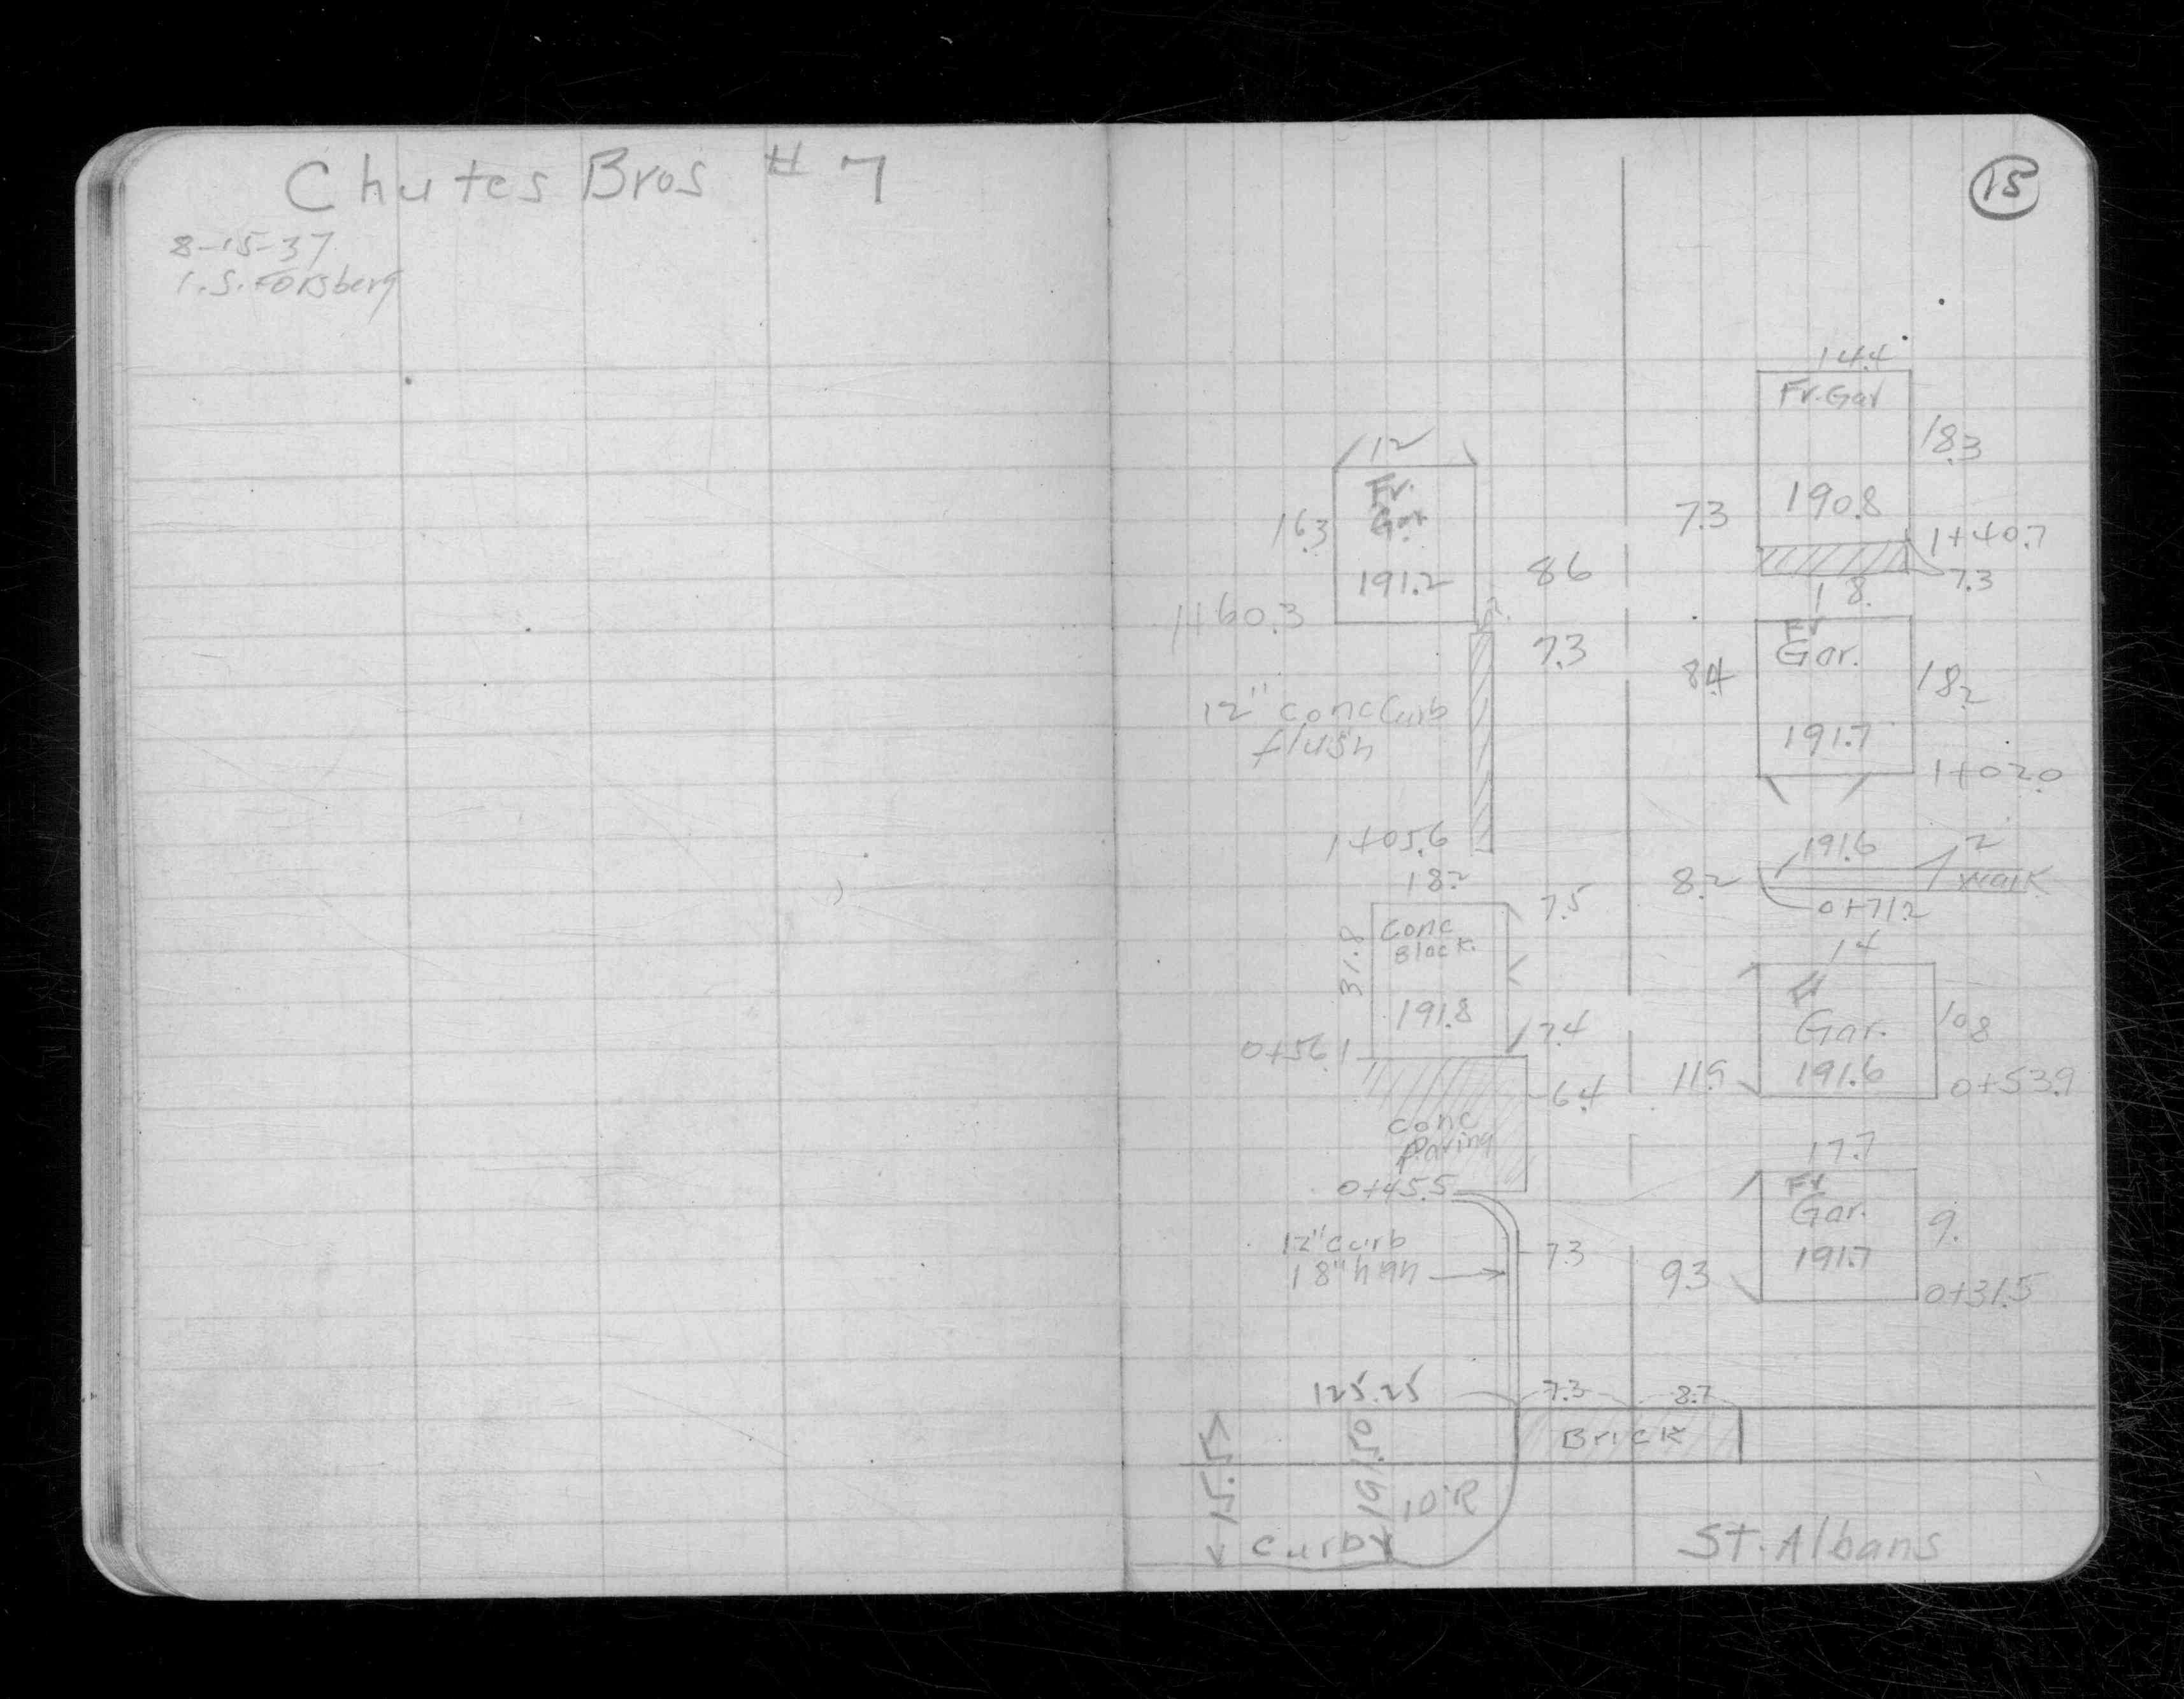 Chutes Bros # 7
8-15-37
I.S. Forsberg
15
14.4
Fr. Gar
18.3
190.8
1+40.7
7.3
7.3
18.
12
Fr.
Gar.
16.3
191.2
1+60.3
8.6
7.3
Fr
Gar.
8.4
18.2
191.7
1+02.0
12" conc Curb
flush
1+05.6
191.6
2
walk
8.2
0+71.2
18.2
7.5
Conc
Block.
31.8
191.8
0+56.1
7.4
14
Fr
Gar.
10.8
191.6
11.9
0+53.9
6.4
conc
Paving
0+45.5
17.7
Fr
Gar.
9.
191.7
9.3
0+31.5
12" curb
18" high
7.3
125.25
7.3
8.7
Brick
15.5
191.50
10'R
curb
St. Albans